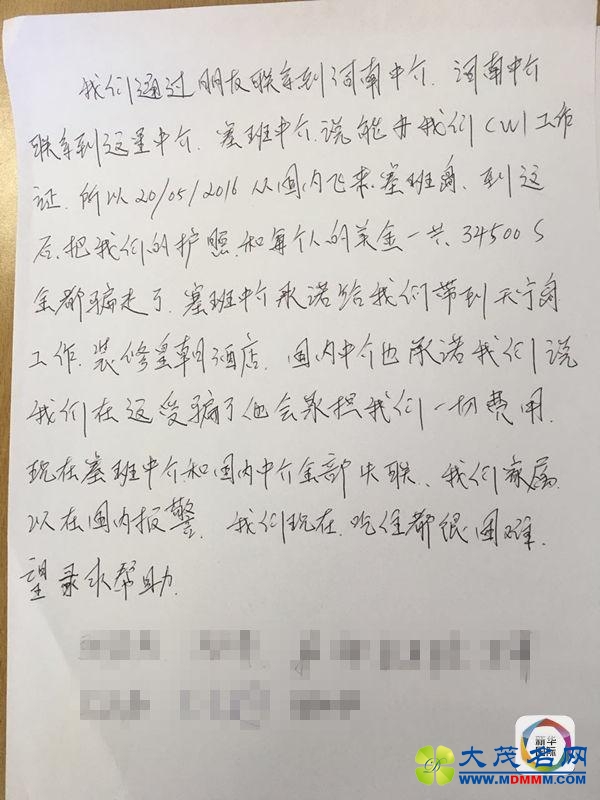 我们通过朋友联系到河南中介.河南中介
联系到这里中介.塞班中介.说能办我们CW1工作
证.所以20/05/2016从国内飞来塞班岛.到这
后.把我们的护照.和每个人的美金一共.34500$
全都骗走了.塞班中介承诺给我们带到天宁岛
工作.装修皇朝酒店.国内中介也承诺我们说
我们在这受骗了他会承担我们一切费用.
现在塞班中介和国内中介全部失联.我们家属
以在国内报警.我们现在.吃住都很困难.
望录求帮助.
新华国际
大茂名网
WWW.MDMMM.COM